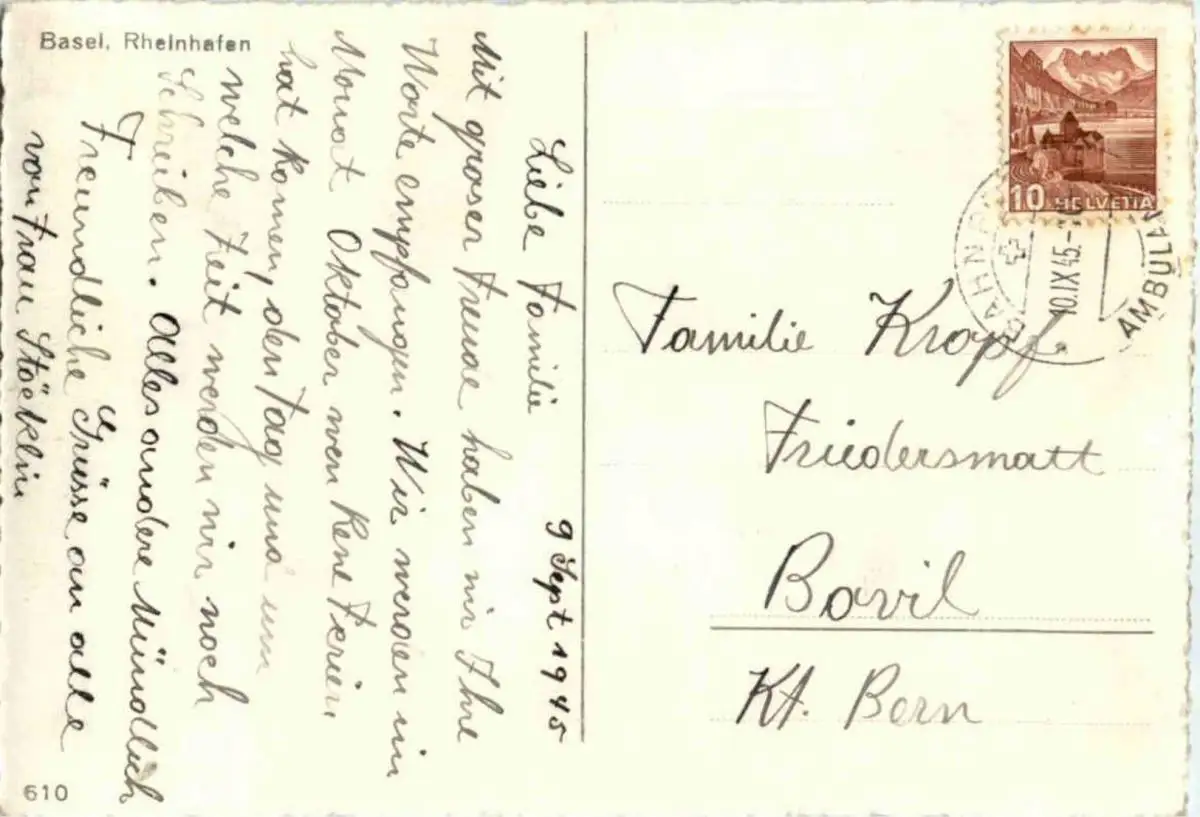 Basel, Rheinhafen
9 Sept 1945
Liebe Familie
Mit groser Freude haben wir Ihre
Worte empfangen. Wir werden im
Monat Oktober wen Rene Ferien
hat komen, den Tag und um
welche Zeit werden wir noch
Schreiben. Alles andere Mündlich
Freundliche Grüsse an alle
von Frau Stöcklin
610
10 HELVETIA
BAHNP
10.IX.45.-
AMBULAN
Familie Kropf.
Friedersmatt
Bovil
Kt. Bern